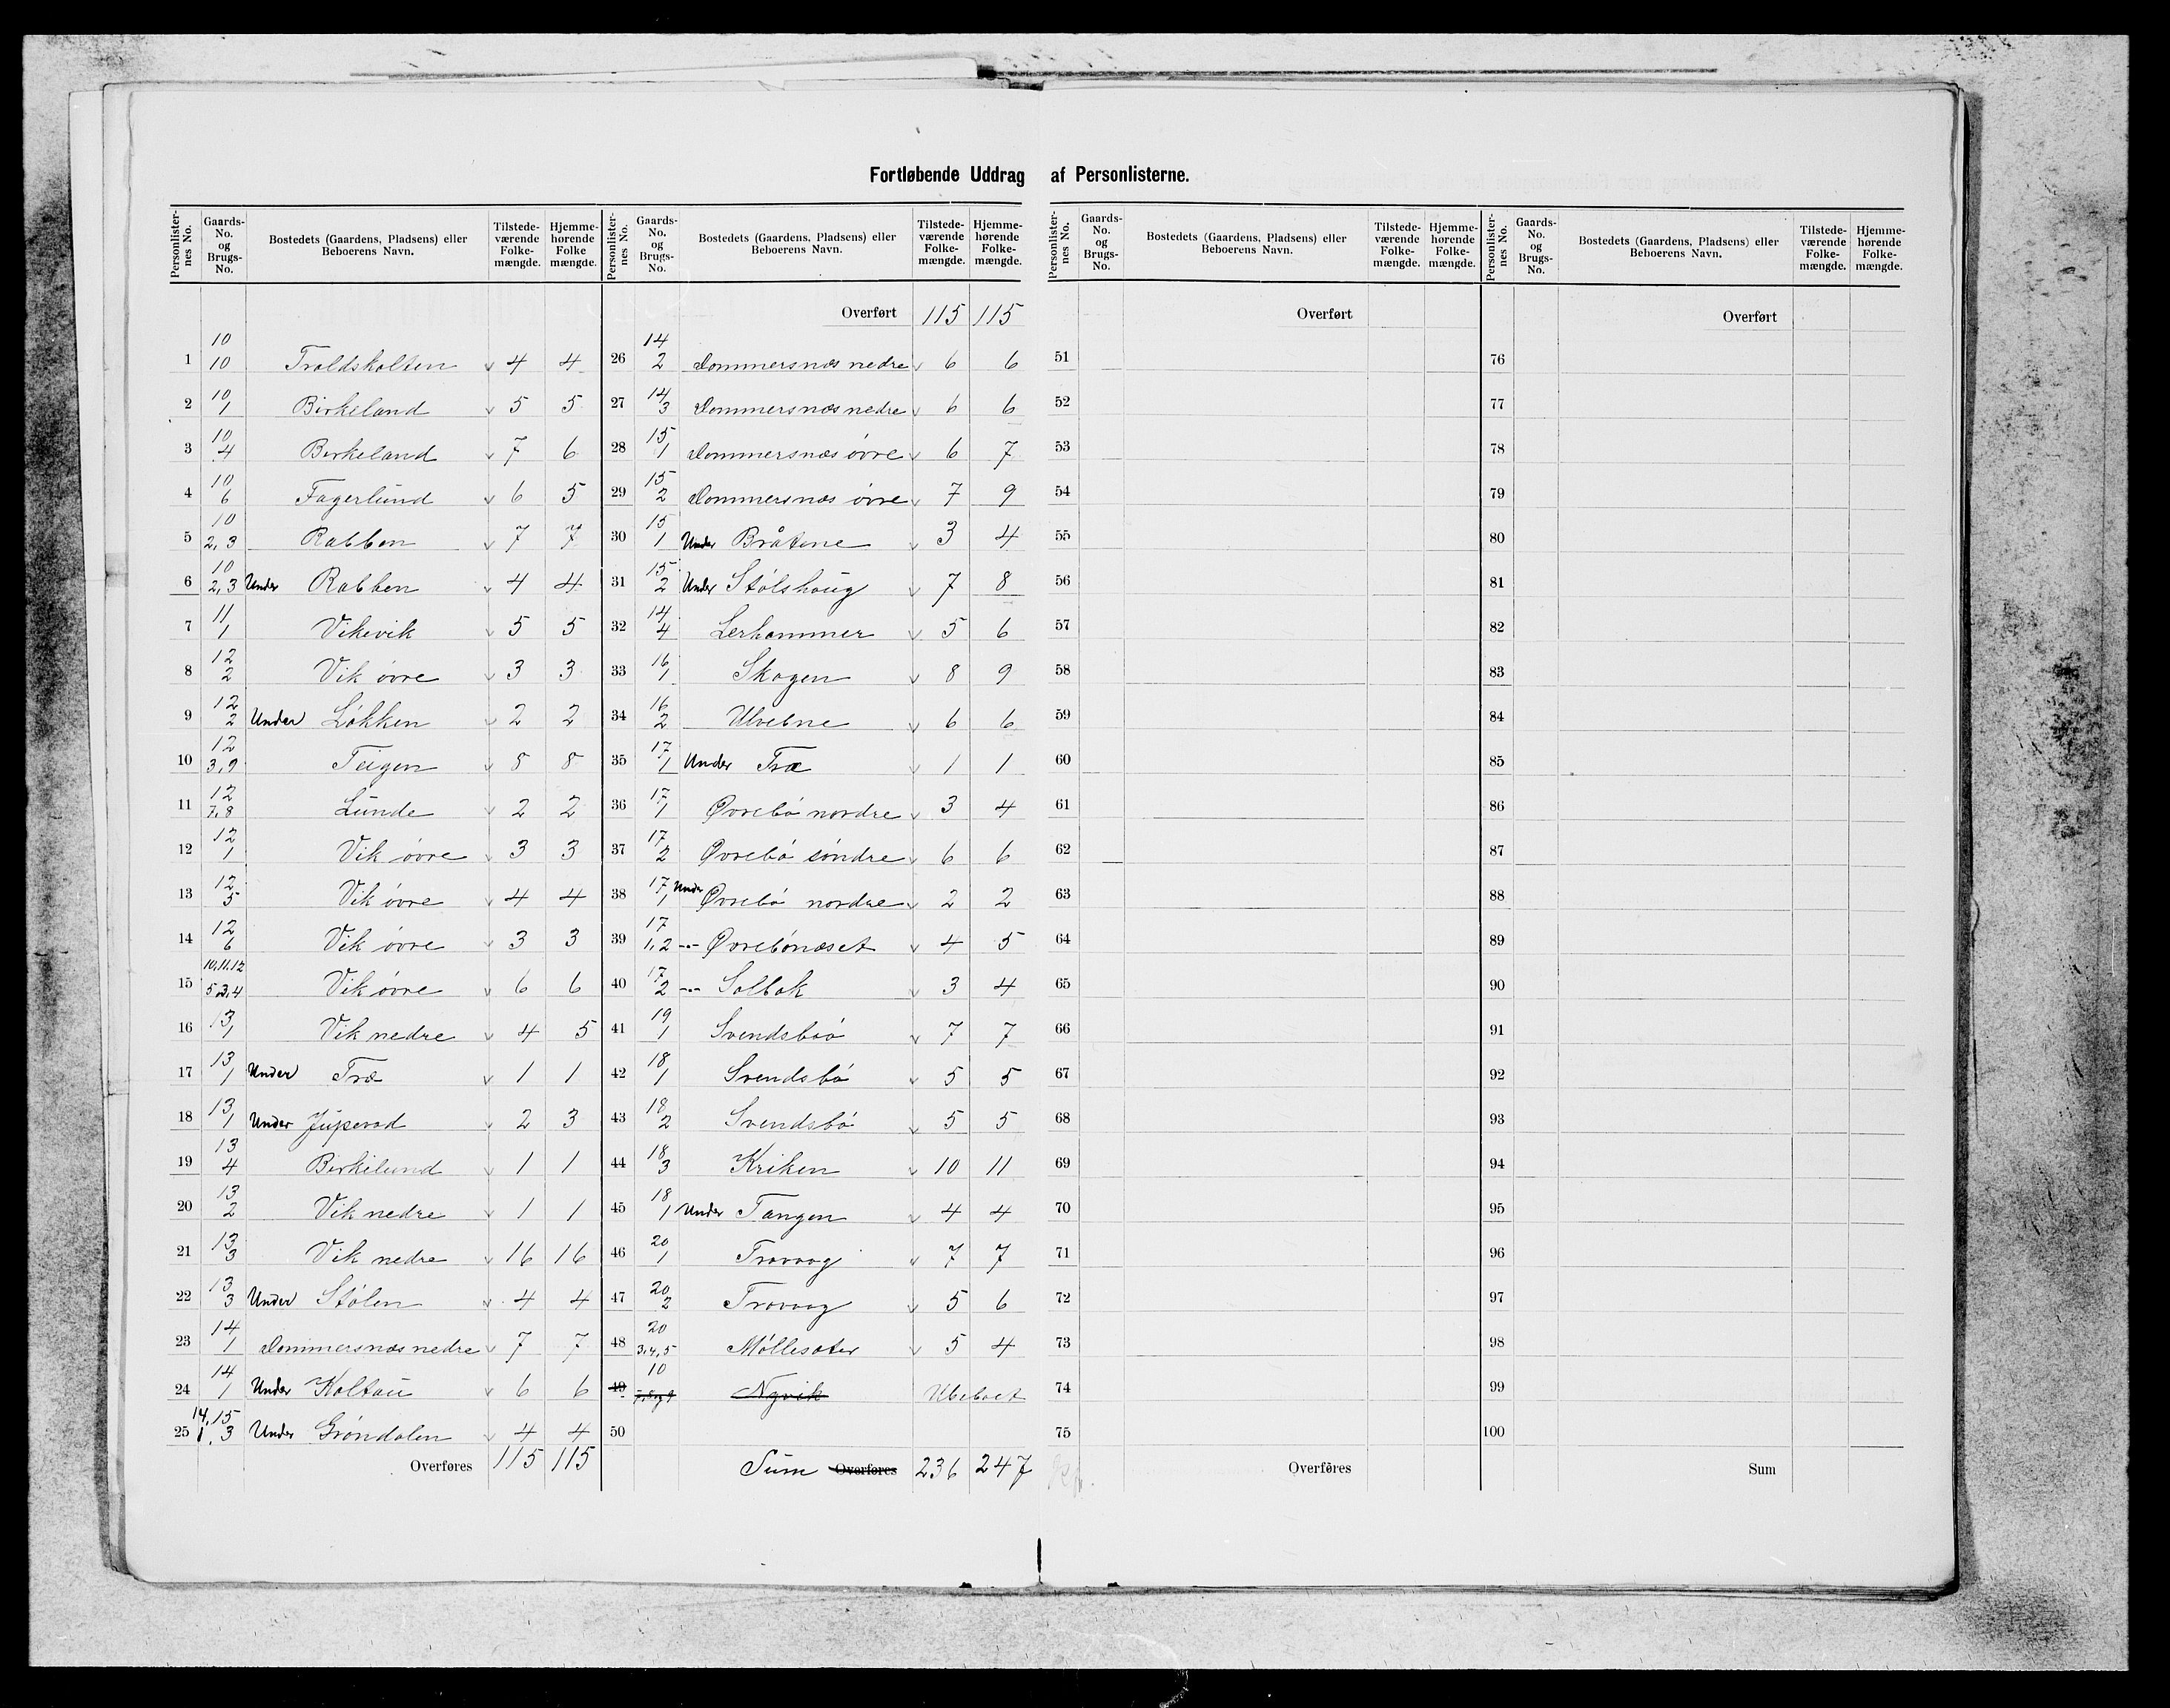 Fortløbende Uddrag af Personlisterne.
Personlister-nes No. | Gaards-No. og Brugs-No. | Bostedets (Gaardens, Pladsens) eller Beboerens Navn. | Tilstede-værende Folke-mængde. | Hjemme-hørende Folke mængde.
1 | 10 10 | Troldsholten | 4 | 4
2 | 10 1 | Birkeland | 5 | 5
3 | 10 4 | Birkeland | 7 | 6
4 | 10 6 | Fagerlund | 6 | 5
5 | 10 2,3 | Rabben | 7 | 7
6 | 10 2,3 | Under Rabben | 4 | 4
7 | 11 1 | Vikevik | 5 | 5
8 | 12 2 | Vik övre | 3 | 3
9 | 12 2 | Under Løkken | 2 | 2
10 | 12 3,9 | Teigen | 8 | 8
11 | 12 7,8 | Lunde | 2 | 2
12 | 12 1 | Vik øvre | 3 | 3
13 | 12 5 | Vik øvre | 4 | 4
14 | 12 6 | Vik øvre | 3 | 3
15 | 10.11.12 5 2,4 | Vik øvre | 6 | 6
16 | 13 1 | Vik nedre | 4 | 5
17 | 13 1 | Under Træ | 1 | 1
18 | 13 1 | Under Juperød | 2 | 3
19 | 13 4 | Birkelund | 1 | 1
20 | 13 2 | Vik nedre | 1 | 1
21 | 13 3 | Vik nedre | 16 | 16
22 | 13 3 | Under Stølen | 4 | 4
23 | 14 1 | Dommersnæs nedre | 7 | 7
24 | 14 1 | Under Koltau | 6 | 6
25 | 14.15 1. 3 | Under Grøndalen | 4 | 4
Overføres 115 115
Personlister-nes No. | Gaards-No. og Brugs-No. | Bostedets (Gaardens, Pladsens) eller Beboerens Navn. | Tilstede-værende Folke-mængde. | Hjemme-hørende Folke-mængde.
Overført 115 115
26 | 14 2 | Dommersnæs nedre | 6 | 6
27 | 14 3 | Dommersnæs nedre | 6 | 6
28 | 15 1 | Dommersnæs øvre | 6 | 7
29 | 15 2 | Dommersnæs øvre | 7 | 9
30 | 15 1 | Under Bråtene | 3 | 4
31 | 15 2 | Under Stølshoug | 7 | 8
32 | 14 4 | Lerhammer | 5 | 6
33 | 16 1 | Skogen | 8 | 9
34 | 16 2 | Ulvebne | 6 | 6
35 | 17 1 | Under Træ | 1 | 1
36 | 17 1 | Øvrebø nordre | 3 | 4
37 | 17 2 | Øvrebø søndre | 6 | 6
38 | 17 1 | Under Øvrebø nordre | 2 | 2
39 | 17 1,2 | -"- Øvrebønæset | 4 | 5
40 | 17 2 | -"- Solbak | 3 | 4
41 | 19 1 | Svendsbøø | 7 | 7
42 | 18 1 | Svendsbø | 5 | 5
43 | 18 2 | Svendsbø | 5 | 5
44 | 18 3 | Kriken | 10 | 11
45 | 18 1 | Under Tangen | 4 | 4
46 | 20 1 | Trovaag | 7 | 7
47 | 20 2 | Trovaag | 5 | 6
48 | 20 3,4,5 | Møllesæter | 5 | 4
49 | 10 | Nyvik | Ubeboet
50
Sum Overføres 236 247
Personlister-nes No. | Gaards-No. og Brugs-No. | Bostedets (Gaardens, Pladsens) eller Beboerens Navn. | Tilstede-værende Folke-mængde. | Hjemme-hørende Folke-mængde.
Overført
51
52
53
54
55
56
57
58
59
60
61
62
63
64
65
66
67
68
69
70
71
72
73
74
75
Overføres
Personlister-nes No. | Gaards-No. og Brugs-No. | Bostedets (Gaardens, Pladsens) eller Beboerens Navn. | Tilstede-værende Folke-mængde. | Hjemme-hørende Folke-mængde.
Overført
76
77
78
79
80
81
82
83
84
85
86
87
88
89
90
91
92
93
94
95
96
97
98
99
100
Sum